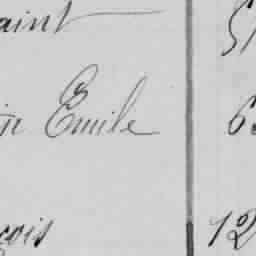 aint 5
in Emile 6
çois 12